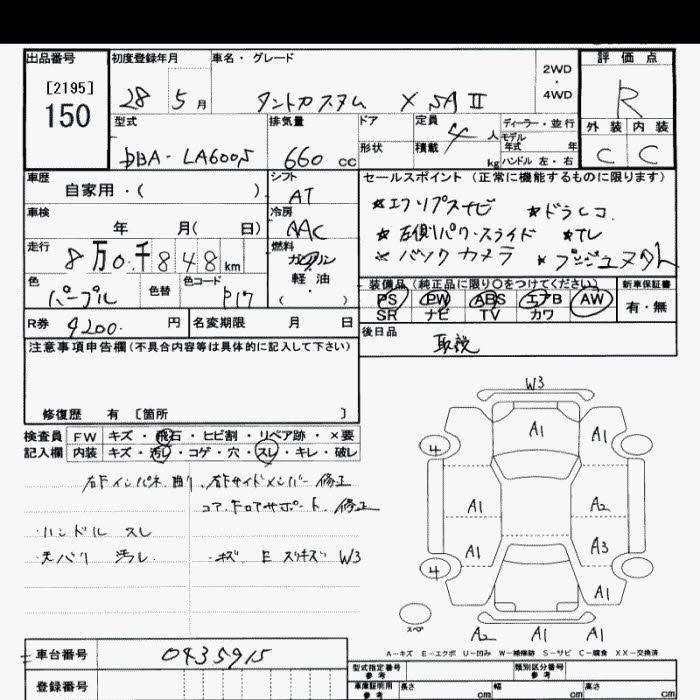 出品番号 初度登録年月 車名・グレード 評価点
[2195]
150
28 5月 タントカスタム X SAⅡ 2WD・4WD R
型式 排気量 ドア 定員 ディーラー・並行 外装 内装
DBA-LA600S 660cc 形状 積載 4人 kg モデル年式 年 ハンドル 左・右 C C
車歴 シフト セールスポイント(正常に機能するものに限ります)
自家用・( ) AT
★エコ ナビ ★ドラレコ
車検 冷房
年 月( 日) AAC
★左側パワースライド ★TL
走行 燃料
8万0千848km ガソリン 軽油 ( )
★バックカメラ ★プッシュスタート
色 色替 色コード 装備品(純正品に限り○をつけてください) 新車保証書
パープル P17 PS PW ABS エアB AW 有・無
SR ナビ TV カワ
R券 9200.円 名変期限 月 日 後日品
取説
注意事項申告欄(不具合内容等は具体的に記入して下さい)
修復歴 有 [箇所 ]
検査員 FW キズ・飛石・ヒビ割・リペア跡・×要
記入欄 内装 キズ・汚レ・コゲ・穴・スレ・キレ・破レ
右Fインパネ曲り、右Fサイドメンバー修正
コアF ロアサポート、修正
・ハンドル スレ
・天バリ 汚レ ・キズ、E スリキズ W3
W3
A1 A1
4
A1 A2
A1 A3
4
A1
スペア
A2 A1 A1
A-キズ E-エクボ U-凹み W-補修跡 S-サビ C-腐食 XX-交換済
車台番号 0435915 型式指定番号 参考 類別区分番号 参考
登録番号 車庫証明用 参考 長さ cm 幅 cm 高さ cm